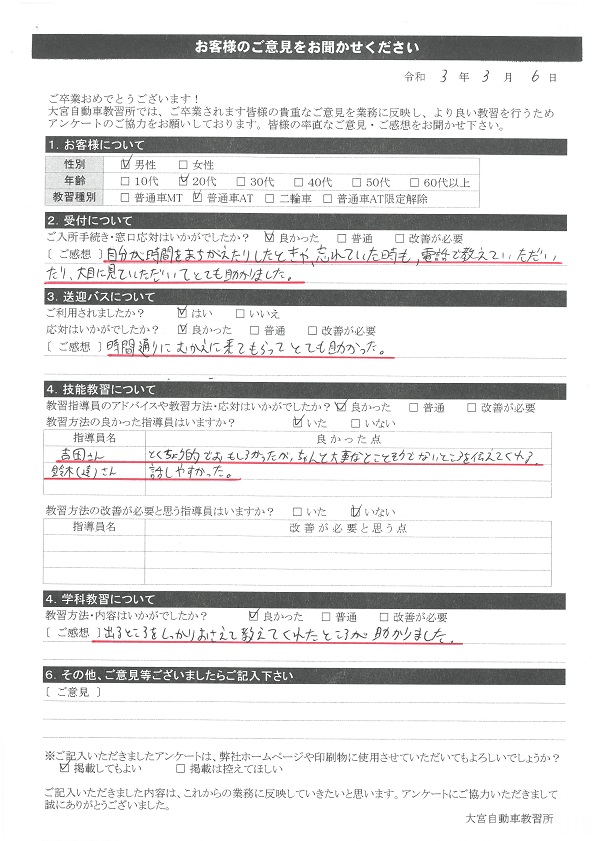 お客様のご意見をお聞かせください
令和 3 年 3 月 6 日
ご卒業おめでとうございます！
大宮自動車教習所では、ご卒業されます皆様の貴重なご意見を業務に反映し、より良い教習を行うため
アンケートのご協力をお願いしております。皆様の率直なご意見・ご感想をお聞かせ下さい。
1. お客様について
性別 ☑男性 □女性
年齢 □10代 ☑20代 □30代 □40代 □50代 □60代以上
教習種別 □普通車MT ☑普通車AT □二輪車 □普通車AT限定解除
2. 受付について
ご入所手続き・窓口応対はいかがでしたか？ ☑良かった □普通 □改善が必要
[ ご感想 ] 自分が時間をまちがえたりしたときや、忘れていた時も、電話で教えていただい
たり、大目に見ていただいてとても助かりました。
3. 送迎バスについて
ご利用されましたか？ ☑はい □いいえ
応対はいかがでしたか？ ☑良かった □普通 □改善が必要
[ ご感想 ] 時間通りにむかえに来てもらってとても助かった。
4. 技能教習について
教習指導員のアドバイスや教習方法・応対はいかがでしたか？ ☑良かった □普通 □改善が必要
教習方法の良かった指導員はいますか？ ☑いた □いない
指導員名 良かった点
吉田さん とくちょう的でおもしろかったが、ちゃんと大事なとこと そうでないところを伝えてくれる
鈴木(達)さん 話しやすかった。
教習方法の改善が必要と思う指導員はいますか？ □いた ☑いない
指導員名 改善が必要と思う点
4. 学科教習について
教習方法・内容はいかがでしたか？ ☑良かった □普通 □改善が必要
[ ご感想 ] 出るところをしっかりおさえて教えてくれたところが助かりました。
6. その他、ご意見等ございましたらご記入下さい
[ ご意見 ]
※ご記入いただきましたアンケートは、弊社ホームページや印刷物に使用させていただいてもよろしいでしょうか？
☑掲載してもよい □掲載は控えてほしい
ご記入いただきました内容は、これからの業務に反映していきたいと思います。アンケートにご協力いただきまして
誠にありがとうございました。
大宮自動車教習所